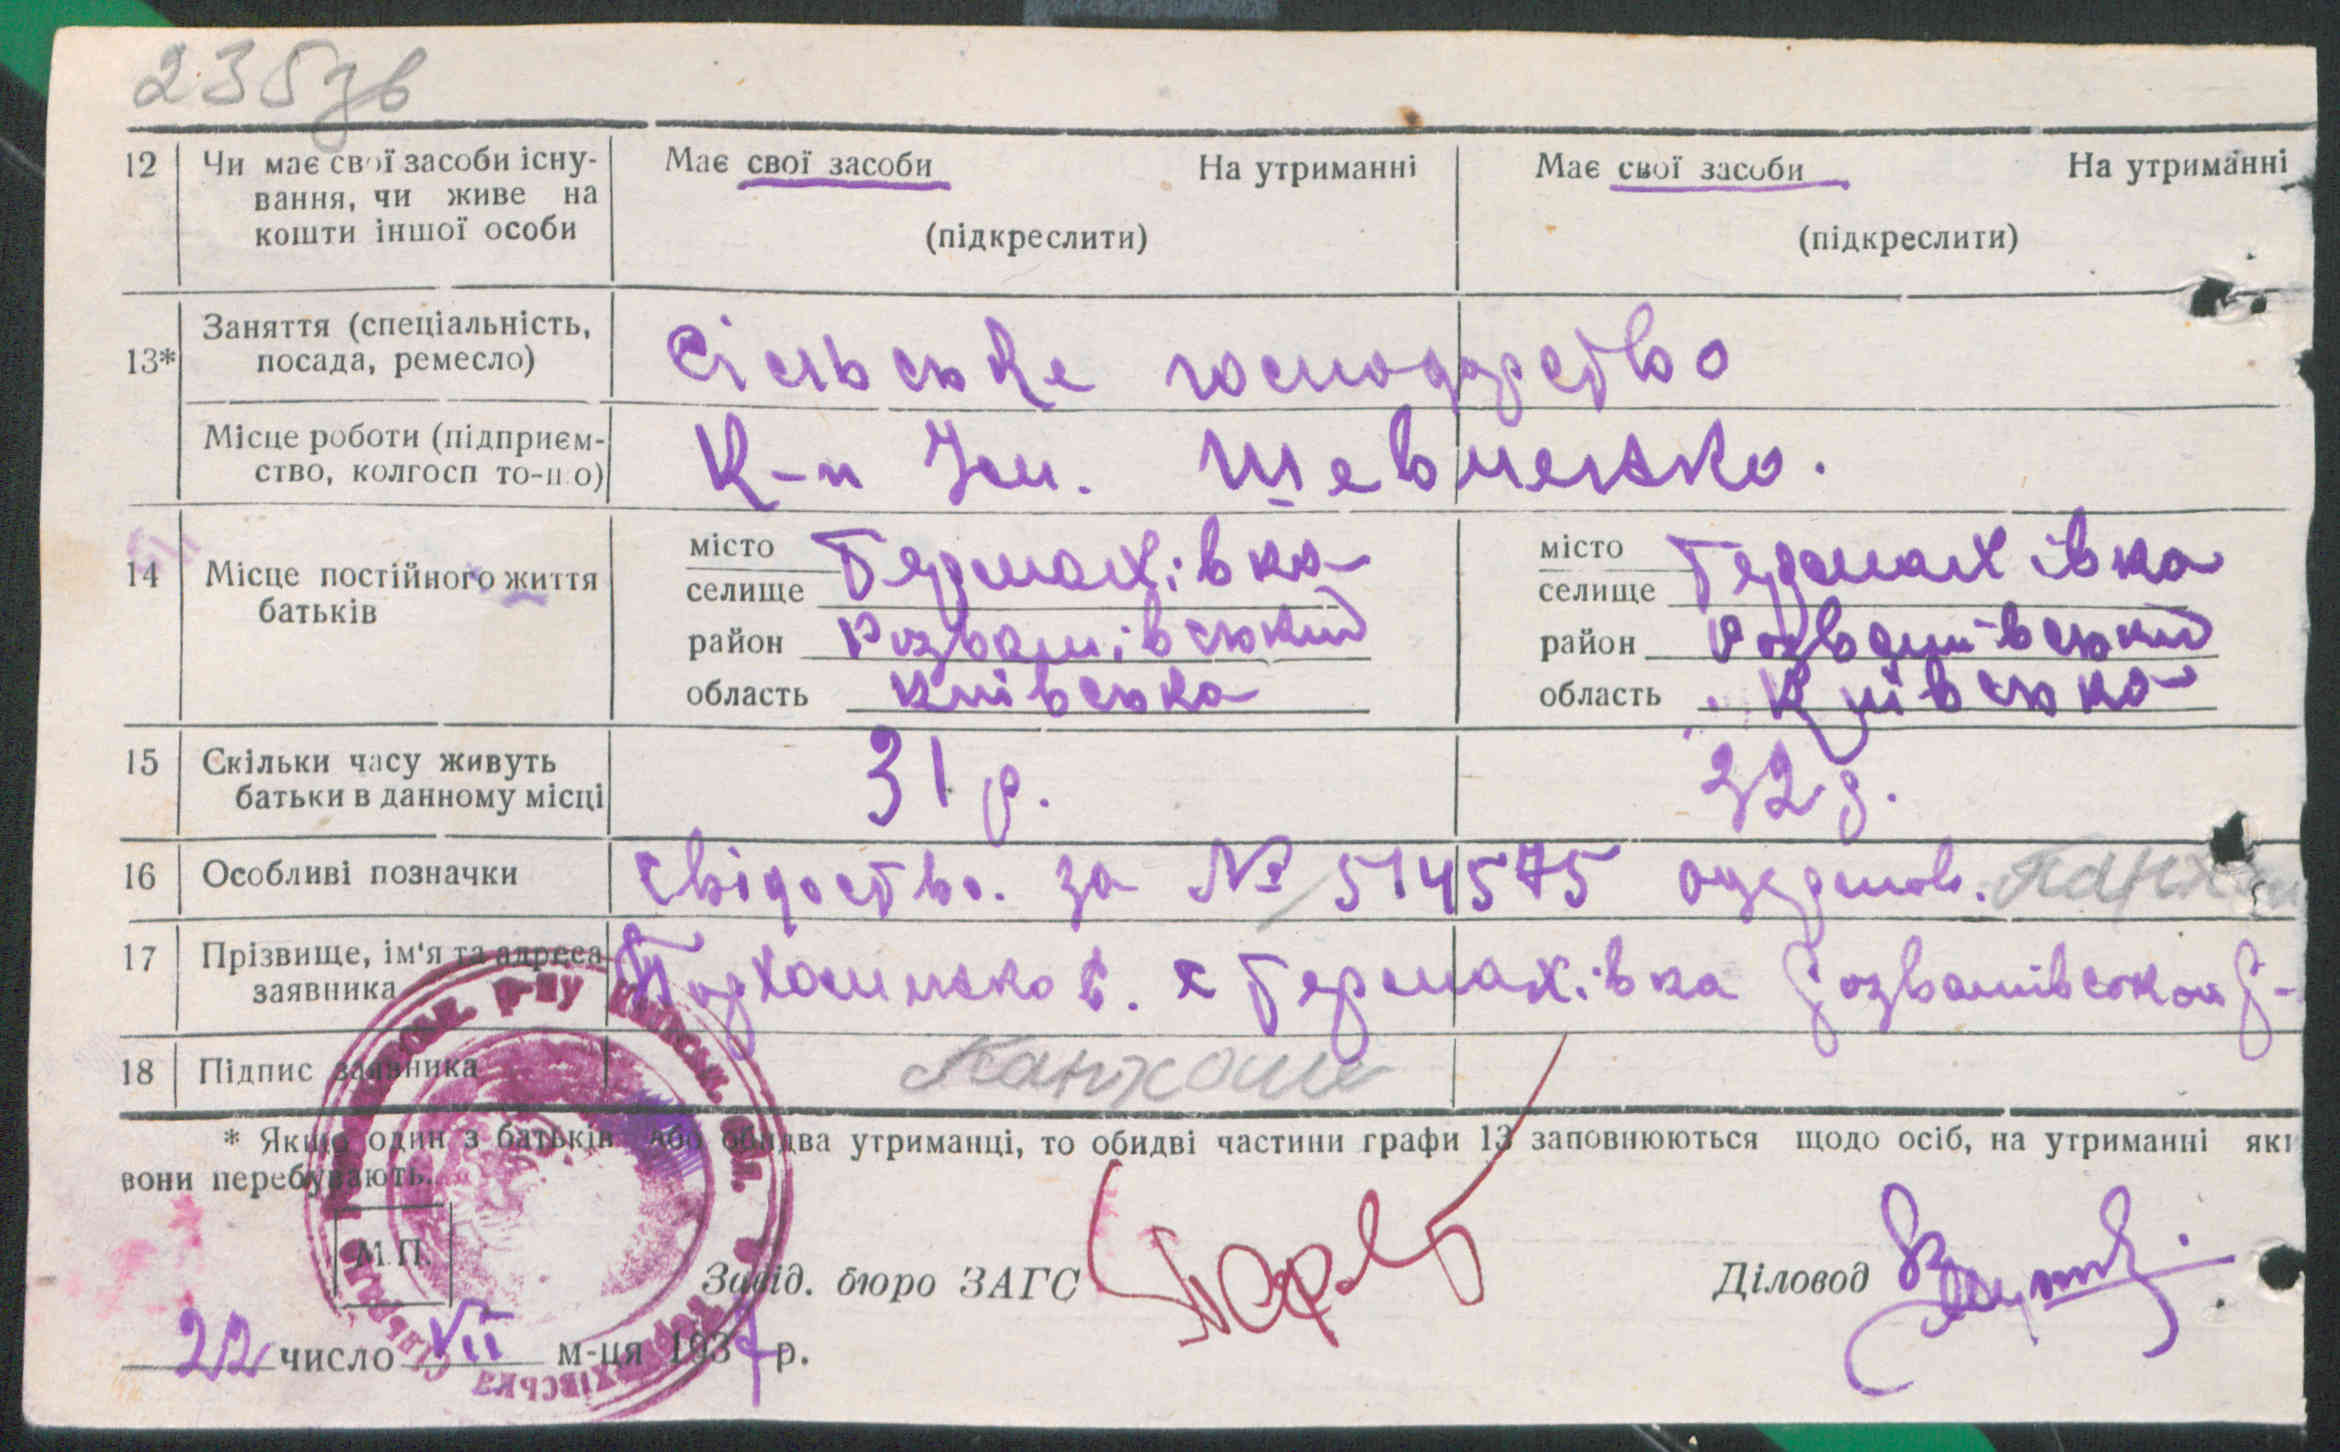 235зв
12 Чи має свої засоби існу-
вання, чи живе на
кошти іншої особи
Має свої засоби На утриманні
(підкреслити)
Має свої засоби На утриманні
(підкреслити)
13* Заняття (спеціальність,
посада, ремесло)
Сільське господарство
Місце роботи (підприєм-
ство, колгосп то-що)
К-п Ім. Шевченко.
14 Місце постійного життя
батьків
місто
селище Термахівка
район Розважівський
область Київська
місто
селище Термахівка
район Розважівський
область Київська
15 Скільки часу живуть
батьки в данному місці
31 р.
32 р.
16 Особливі позначки
Свідоство. за № 514575 одержав.
17 Прізвище, ім'я та адреса
заявника
с Термахівка Розважівського р-
18 Підпис заявника
* Якщо один з батьків або обидва утриманці, то обидві частини графи 13 заповнюються щодо осіб, на утриманні яки
вони перебувають.
М.П.
Завід. бюро ЗАГС
Діловод
22 число VII м-ця 1937 р.